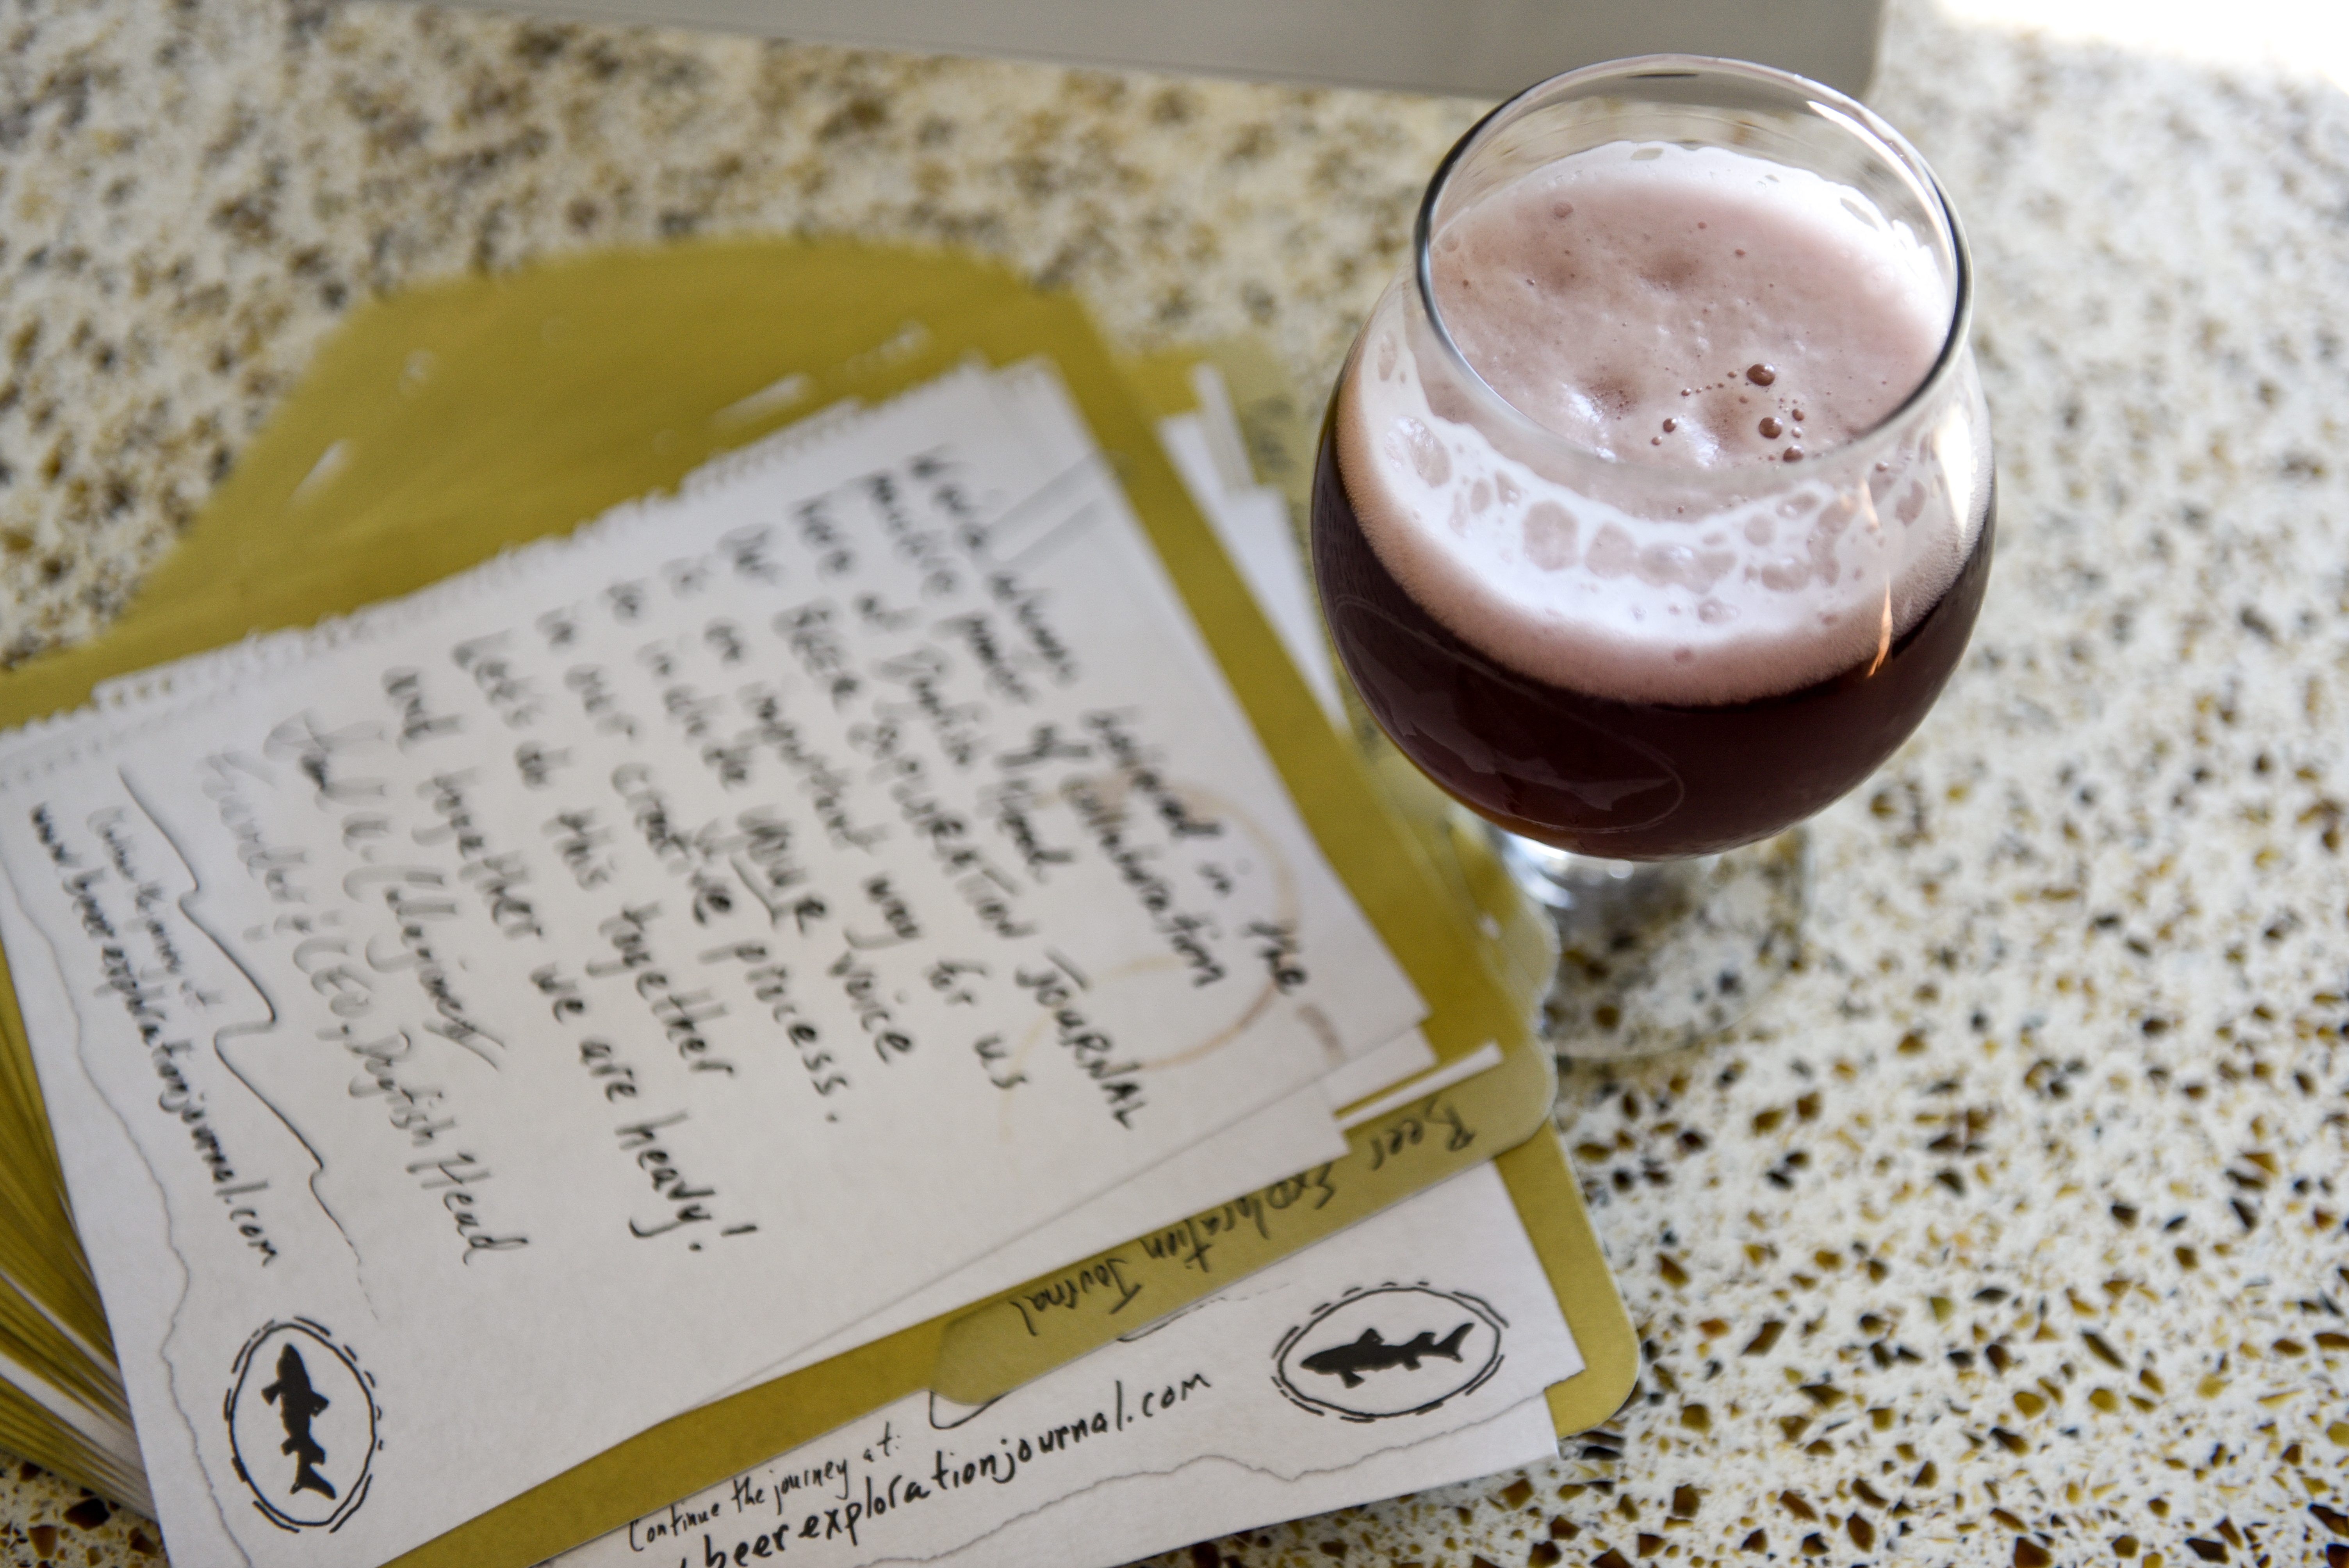 believed in the
massive power of collaboration
here at Dogfish Head.
Our BEER EXPLORATION JOURNAL
is an important way for us
to include YOUR voice
in our creative process.
Let's do this together
and together we are heavy!
Founder & CEO, Dogfish Head
Continue the journey at
www.beerexplorationjournal.com
Beer Exploration Journal
Continue the journey at:
beerexplorationjournal.com